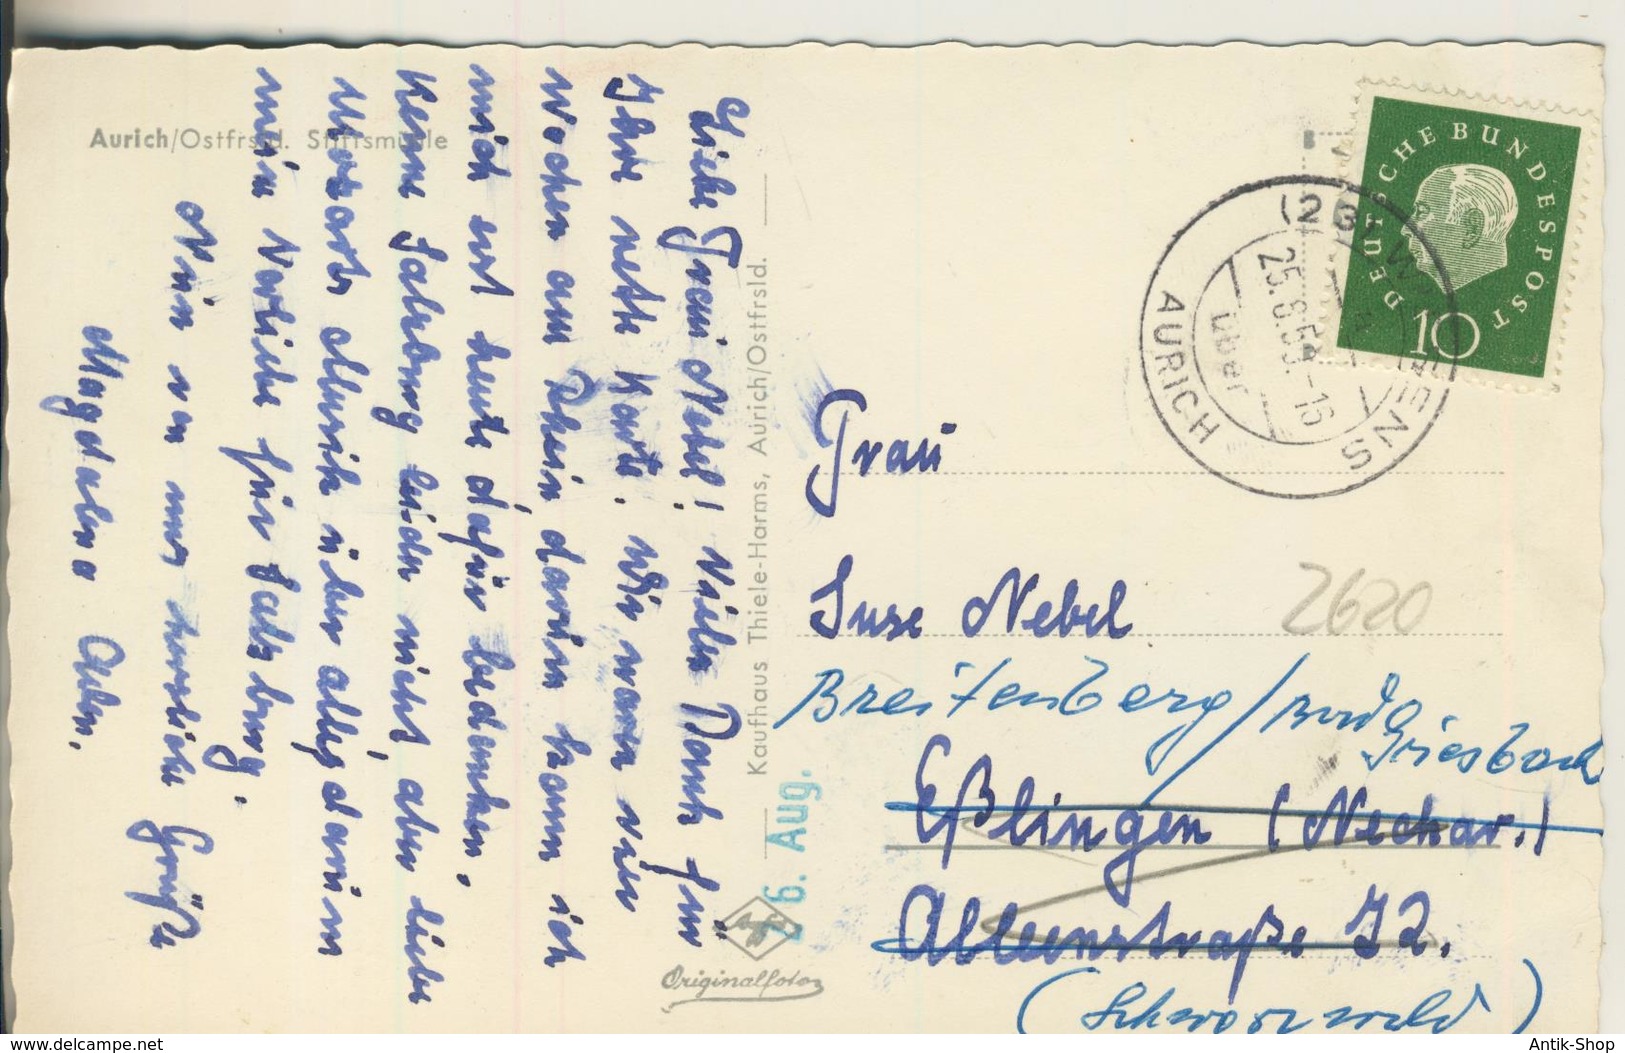 Aurich/Ostfrsld. Stiftsmühle
Liebe Frau Nebel! Vielen Dank für
Ihre nette Karte. Wir waren vier
Wochen am Rhein darum kann ich
mich erst heute dafür bedanken.
Kenne Salzburg leider nicht, aber liebe
Mozarts Musik über alles darum
mein Vorliebe für Salzburg.
Nun von mir herzliche Grüße
Magdalena Aden.
Kaufhaus Thiele-Harms, Aurich/Ostfrsld.
26. Aug.
Originalfoto
DEUTSCHE BUNDESPOST
10
AURICH
über
25.8.59.-16
Frau
Suse Nebel
2620
Breitenberg/Bad
Griesbach
Eßlingen (Neckar.)
Alleenstraße 32.
(Schwarzwald)
Antik-Shop
www.delcampe.net